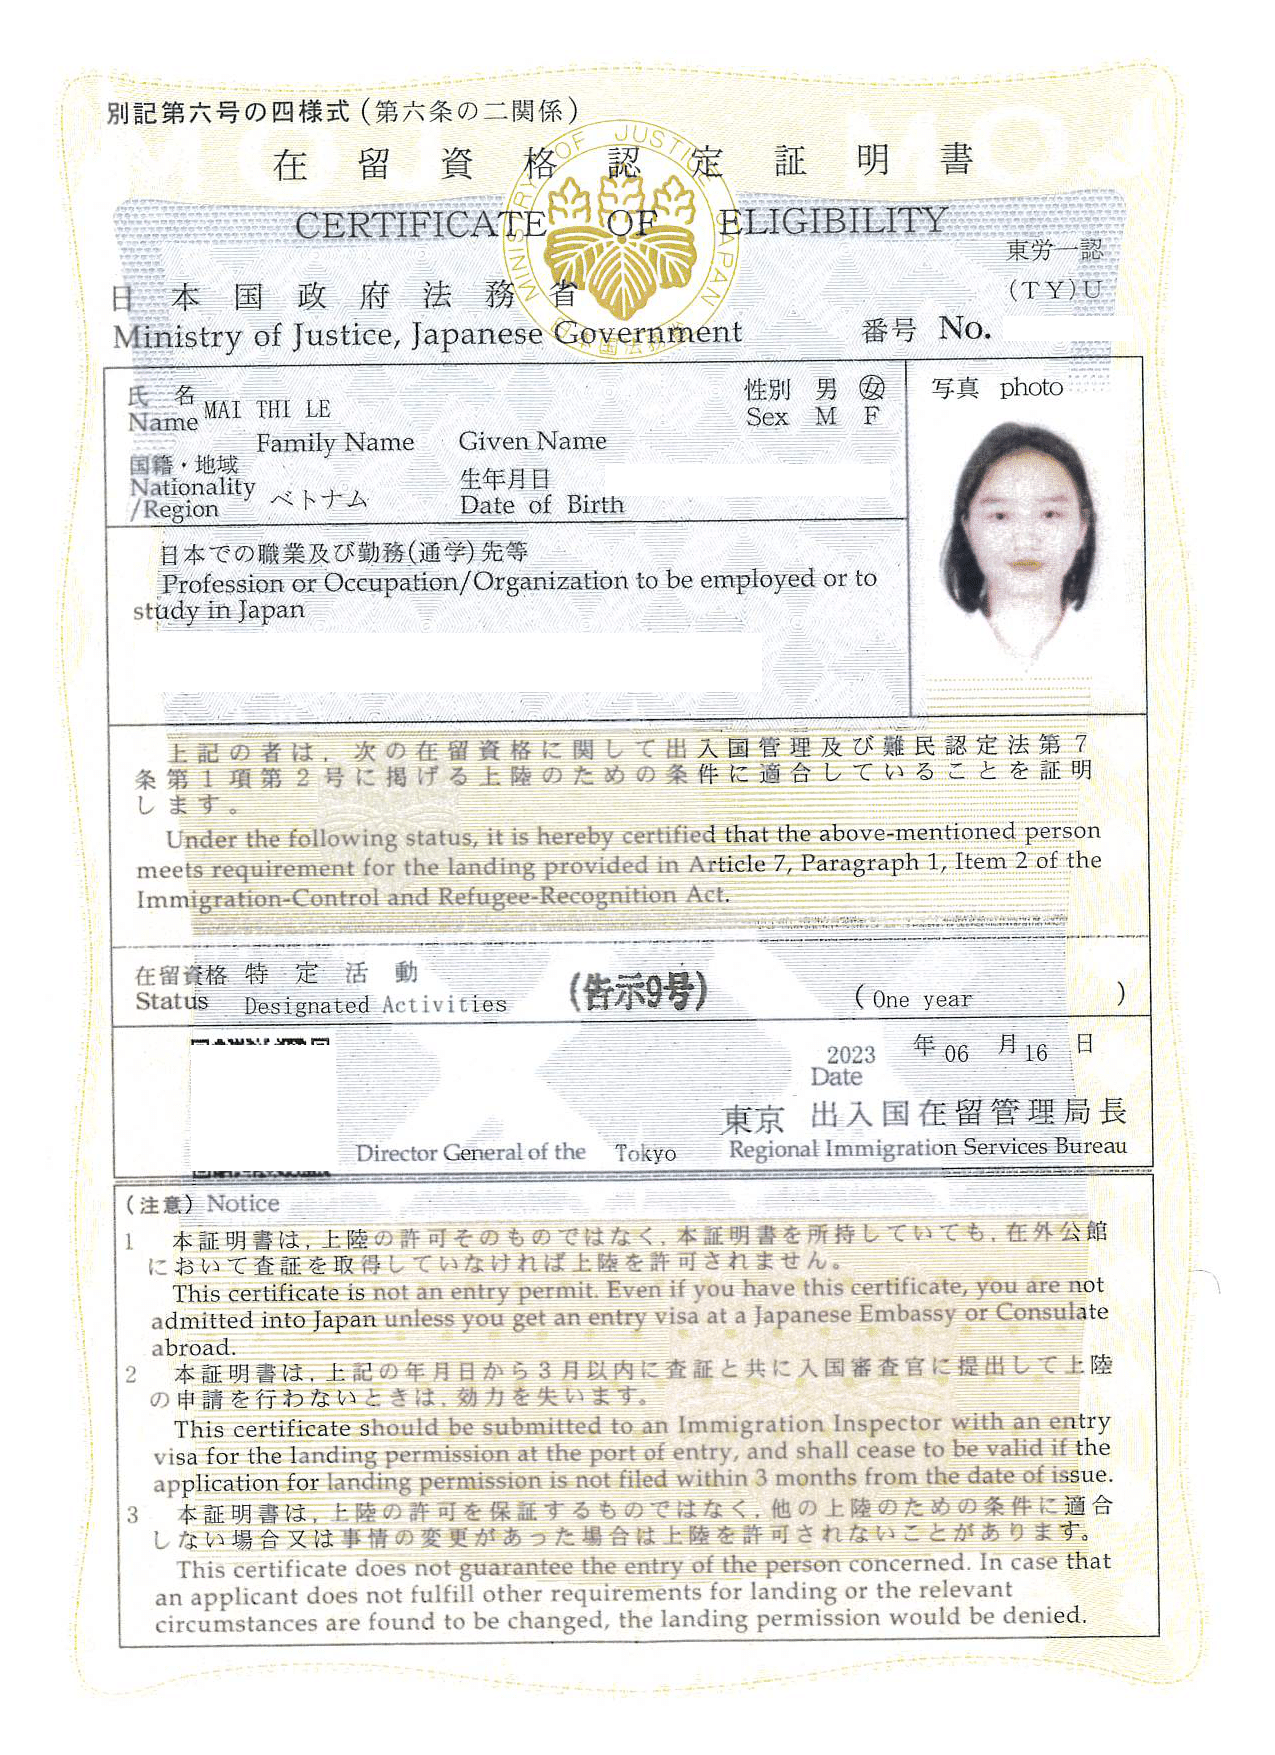 別記第六号の四様式(第六条の二関係)
在留資格認定証明書
CERTIFICATE OF ELIGIBILITY
MINISTRY OF JUSTICE JAPAN
東労一認
日本国政府法務省
(TY)U
Ministry of Justice, Japanese Government
番号 No.
氏名 性別 男 女
写真 photo
Name MAI THI LE
Sex M F
Family Name Given Name
国籍・地域 生年月日
Nationality
/Region ベトナム
Date of Birth
日本での職業及び勤務(通学)先等
Profession or Occupation/Organization to be employed or to
study in Japan
上記の者は, 次の在留資格に関して出入国管理及び難民認定法第7
条第1項第2号に掲げる上陸のための条件に適合していることを証明
します。
Under the following status, it is hereby certified that the above-mentioned person
meets requirement for the landing provided in Article 7, Paragraph 1, Item 2 of the
Immigration-Control and Refugee-Recognition Act.
在留資格 特定活動
Status Designated Activities (告示9号) (One year )
2023 年 06 月 16 日
Date
東京 出入国在留管理局長
Director General of the Tokyo Regional Immigration Services Bureau
(注意) Notice
1 本証明書は, 上陸の許可そのものではなく, 本証明書を所持していても, 在外公館
において査証を取得していなければ上陸を許可されません。
This certificate is not an entry permit. Even if you have this certificate, you are not
admitted into Japan unless you get an entry visa at a Japanese Embassy or Consulate
abroad.
2 本証明書は, 上記の年月日から3月以内に査証と共に入国審査官に提出して上陸
の申請を行わないときは, 効力を失います。
This certificate should be submitted to an Immigration Inspector with an entry
visa for the landing permission at the port of entry, and shall cease to be valid if the
application for landing permission is not filed within 3 months from the date of issue.
3 本証明書は, 上陸の許可を保証するものではなく, 他の上陸のための条件に適合
しない場合又は事情の変更があった場合は上陸を許可されないことがあります。
This certificate does not guarantee the entry of the person concerned. In case that
an applicant does not fulfill other requirements for landing or the relevant
circumstances are found to be changed, the landing permission would be denied.